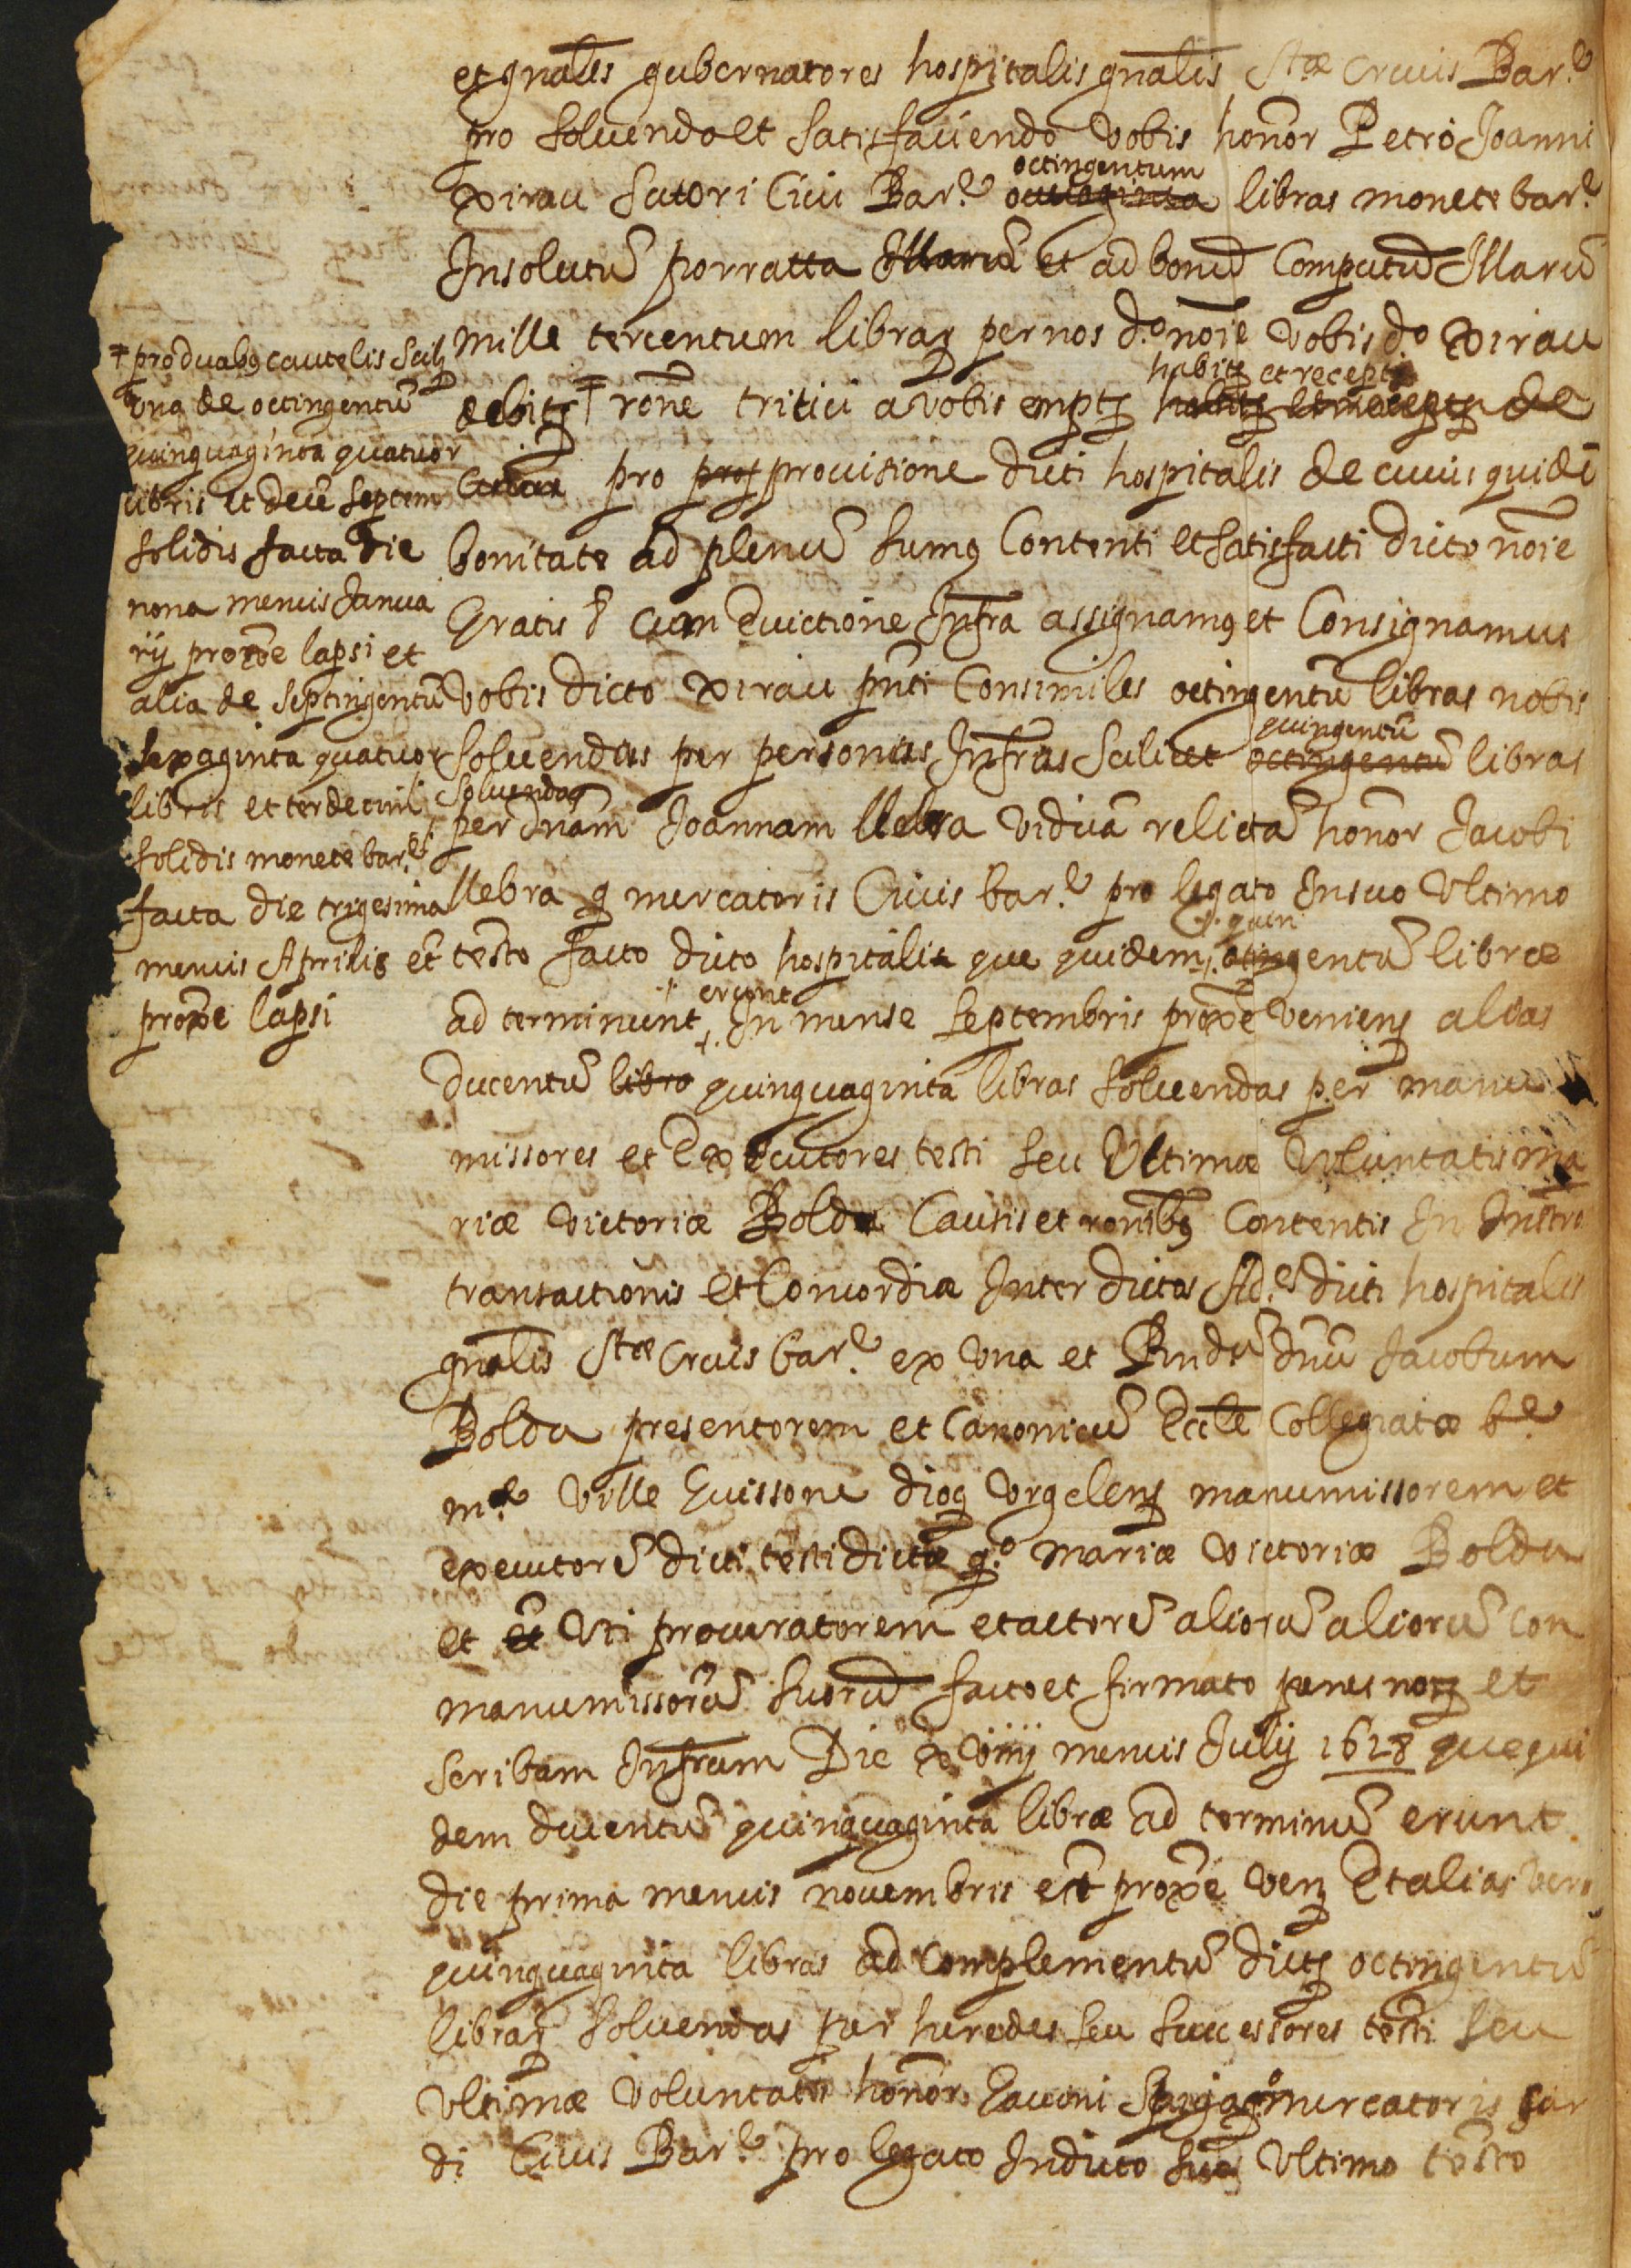 et gnales gubernatores hospitalis gnalis Stæ Crucis Bar.e
pro soluendo et satisfaciendo vobis honor Petro Joanni
Xirau sutori Ciui Bar.e octingentum libras monete bar.e
Insolutũ porratta Illarũ et ad bonũ Computũ Illarũ
mille tercentum libraȝ per nos d.o noie vobis d.o Xirau
debitȝ ⹋ rone tritici a vobis emptȝ habitȝ et receptȝ de
pro proȝ prouisione dicti hospitalis de cuius quidẽ
bonitate ad plenũ sumȝ Contenti et satisfacti dicto noie
Gratis & cum Euictione Infra assignamȝ et Consignamus
vobis dicto Xirau pnti Consimiles octingentũ libras nobis
soluendas per personas Infras Scilicet quingentũ octingentũ libras
soluendas
per Dnam Joannam llebra viduã relictã honor Jacobi
llebra q mercatoris Ciuis bar.e pro legato Insuo Vltimo
testo facto dicto hospitali que quidem quingentũ libræ
ad terminunt erunt In mense septembris proxe veniens alias
Ducentũ libra quinquaginta libras soluendas per manu
missores et Executores testi seu Vltimæ Voluntatis ma
riæ victoriæ Boldu Causis et ronibȝ Contentis In Instro
transactionis et Concordiæ Inter dictos Ad.es dicti hospitalis
gnalis Stæ Crucis bar.e ex vna et Rndũ dnũ Jacobum
Boldu presentorem et Canonicũ Eccle Collegiatæ b.e
m.e Ville Guissone dioȝ Vrgelens manumissorem et
executorẽ dicti testi dictæ q.o mariæ victoriæ Boldu
et et vti procuratorem et actorẽ aliorũ aliorũ con
manumissorũ suorũ facto et firmato penes notȝ et
scribam Infrum Die xviiij mensis Julij 1628 que qui
dem ducentũ quinquaginta libræ ad terminũ erunt
die prima mensis nouembris et proxe venȝ Et alias vero
quinquaginta libras ad complementũ dictȝ octingentũ
libraȝ soluendas per heredes seu successores testi seu
Vltimæ voluntatis honor Gauoni mercatoris sar
di Ciuis Bar.e pro legato Indicto suo Vltimo testo
⹋ pro duabȝ cautelis scilȝ
vna de octingentũ
quinquaginta quatuor
libris et decẽ septem
solidis facta die
nona mensis Janua
rij proxe lapsi et
alia de septingentũ
sexaginta quatuor
libris et terdecim
solidis monete bar.e
facta die trigesima
mensis Aprilis et
proxe lapsi